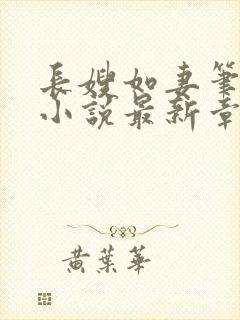 長嫂如妻筆
小說最新章
黃葉華